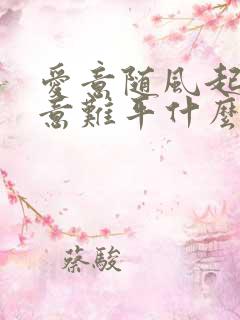 愛意随風起
意難平什麼
蔡駿